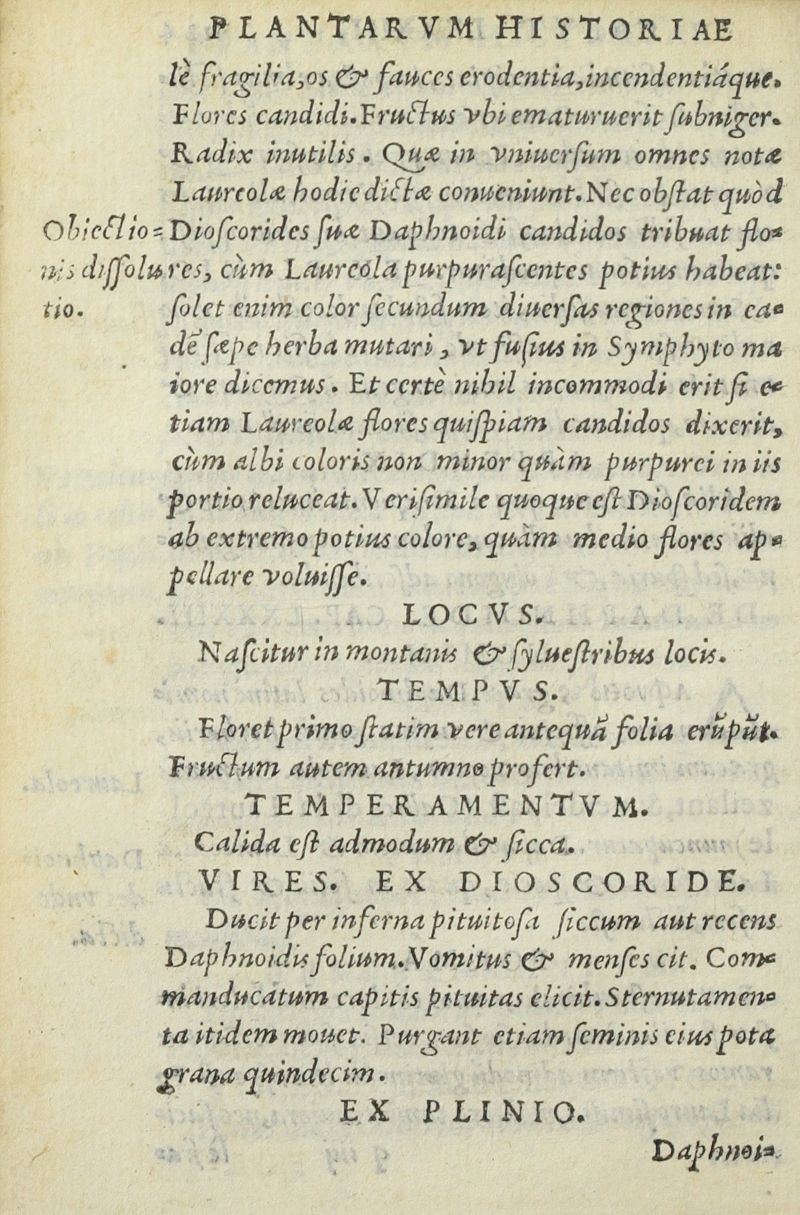 PLANTARVM HISTORIAE
lè fragilia, os & fauces erodentia, incendentiáque.
Flores candidi. Fructus vbi ematuruerit ſubniger.
Radix inutilis. Quæ in vniuerſum omnes notæ
Laureolæ hodie dictæ conueniunt. Nec obſtat quòd
Obiectio-
nis diſſolu
tio.
Dioſcorides ſuæ Daphnoidi candidos tribuat flo-
res, cùm Laureola purpuraſcentes potius habeat:
ſolet enim color ſecundum diuerſas regiones in ea-
dē ſæpe herba mutari, vt fuſius in Symphyto ma
iore dicemus. Et certè nihil incommodi erit ſi e-
tiam Laureolæ flores quiſpiam candidos dixerit,
cùm albi coloris non minor quàm purpurei in iis
portio reluceat. Veriſimile quoque eſt Dioſcoridem
ab extremo potius colore, quàm medio flores ap-
pellare voluiſſe.
LOCVS.
Naſcitur in montanis & ſylueſtribus locis.
TEMPVS.
Floret primo ſtatim vere antequā folia erūpūt.
Fructum autem antumno profert.
TEMPERAMENTVM.
Calida eſt admodum & ſicca.
VIRES. EX DIOSCORIDE.
Ducit per inferna pituitoſa ſiccum aut recens
Daphnoidis folium. Vomitus & menſes cit. Com-
manducatum capitis pituitas elicit. Sternutamen-
ta itidem mouet. Purgant etiam ſeminis eius pota
grana quindecim.
EX PLINIO.
Daphnoi-